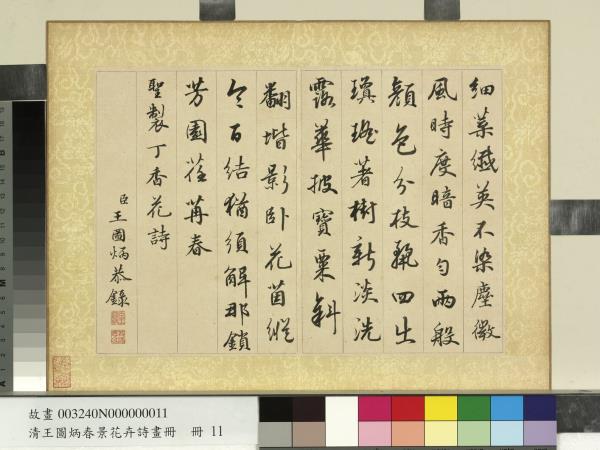 細葉纖英不染塵微
風時度暗香勻兩般
顏色分枝四出
瓊瑤著樹新淡洗
露華披寶粟斜
翻堦影臥花茵縱
令百結猶須解那鎖
芳園荏苒春
聖製丁香花詩
臣王圖炳恭錄
故畫 003240N000000011
清王圖炳春景花卉詩畫冊 冊 11